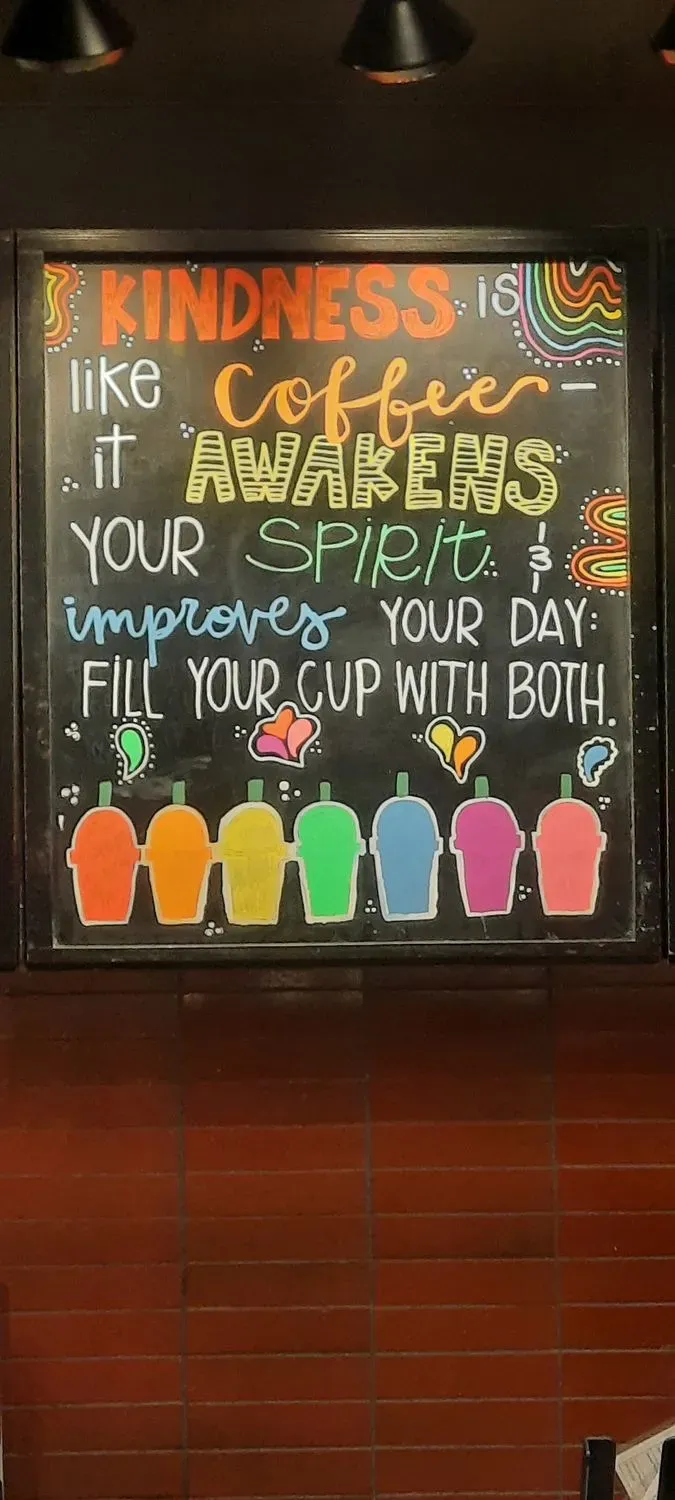 KINDNESS is
like Coffee –
it AWAKENS
YOUR SPIRIt &
improves YOUR DAY:
FILL YOUR CUP WITH BOTH.